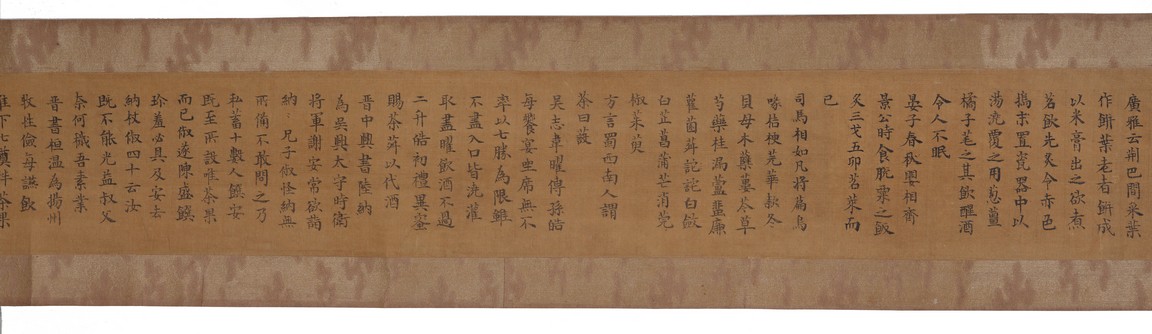 廣雅云荆巴間采葉
作餅葉老者餅成
以米膏出之欲煮
茗飲先炙令赤色
搗末置瓷器中以
湯澆覆之用葱薑
橘子芼之其飲醒酒
令人不眠
晏子春秋嬰相齊
景公時食脫粟之飯
炙三戈五卵茗菜而
已
司馬相如凡將篇烏
喙桔梗芫華款冬
貝母木蘗蔞芩草
芍藥桂漏蘆蜚廉
雚菌荈詫白斂
白芷菖蒲芒消莞
椒茱萸
方言蜀西南人謂
茶曰蔎
吴志韋曜傳孫皓
每饗宴坐席無不
率以七勝為限雖
不盡入口皆澆灌
取盡曜飲酒不過
二升皓初禮異密
賜茶荈以代酒
晋中興書陸納
為吴興太守時衛
將軍謝安常欲詣
納兄子俶怪納無
所備不敢問之乃
私蓄十數人饌安
既至所設唯茶果
而已俶遂陳盛饌
珍羞必具及安去
納杖俶四十云汝
既不能光益叔父
柰何穢吾素業
晋書桓温為揚州
牧性儉每讌飲
唯下七奠柈茶果